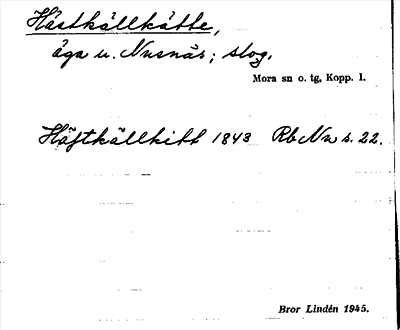 Hästkällkätte,
äga u. Nusnäs; skog.
Mora sn o. tg, Kopp. l.
Häftkällkitt 1843 Rb Nu s. 22.
Bror Lindén 1945.